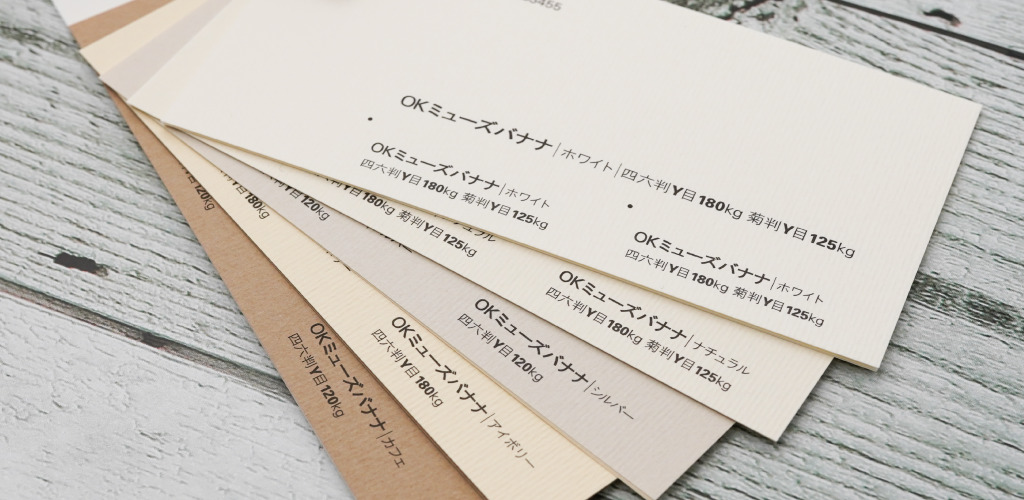 5455
OKミューズバナナ|ホワイト|四六判Y目180kg 菊判Y目125kg
OKミューズバナナ|ホワイト
四六判Y目180kg 菊判Y目125kg
OKミューズバナナ|ホワイト
四六判Y目180kg 菊判Y目125kg
ュラル
180kg 菊判Y目125kg
OKミューズバナナ|ナチュラル
四六判Y目180kg 菊判Y目125kg
120kg
OKミューズバナナ|シルバー
四六判Y目120kg
180kg
OKミューズバナナ|アイボリー
四六判Y目180kg
120kg
OKミューズバナナ|カフェ
四六判Y目120kg